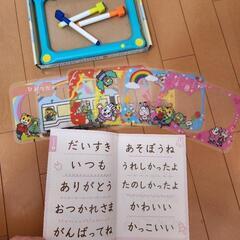 だいすき
いつも
ありがとう
おつかれさま
がんばってね
あそぼうね
うれしかったよ
たのしかったよ
かわいい
かっこいい